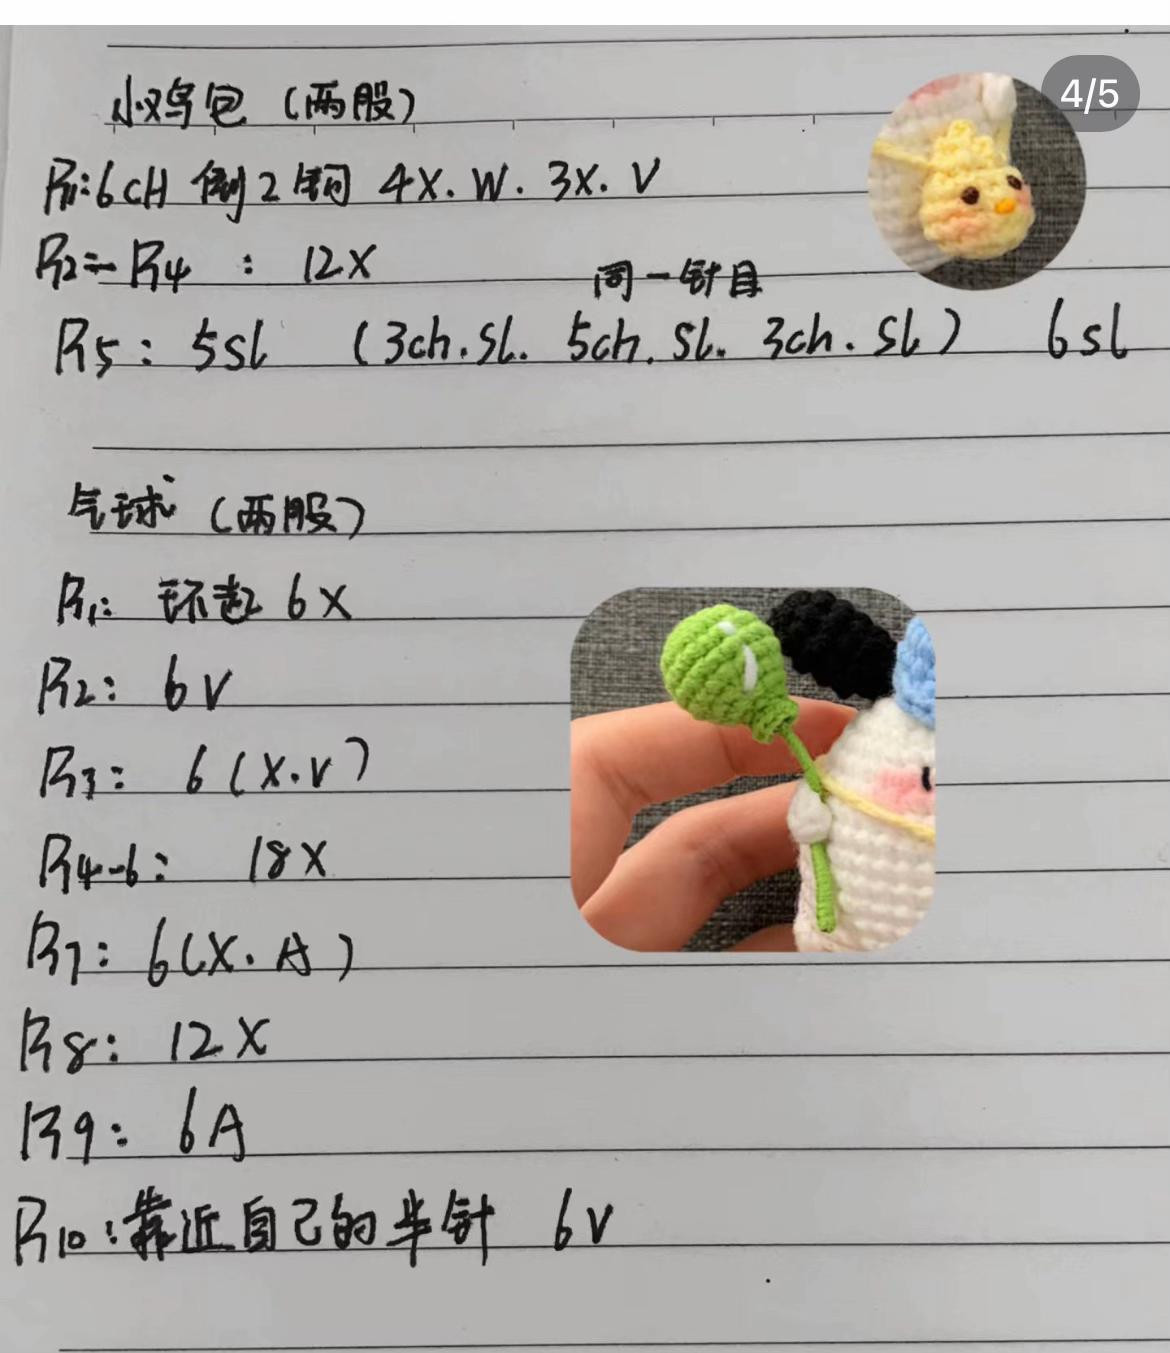 4/5
小鸡包（两股）
R1:6CH 倒2钩 4X. W. 3X. V
R2-R4 : 12X
同一针目
R5: 5sl （3ch.sl. 5ch.sl. 3ch.sl） 6sl
气球（两股）
R1: 环起 6X
R2: 6V
R3: 6(X.V)
R4-6: 18X
R7: 6(X.A)
R8: 12X
R9: 6A
R10:靠近自己的半针 6V